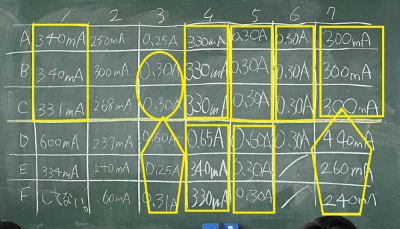 1 2 3 4 5 6 7
A 340mA 250mA 0.25A 330mA 0.30A 0.30A 300mA
B 340mA 300mA 0.30A 330mA 0.30A 0.30A 300mA
C 331mA 268mA 0.30A 330mA 0.30A 0.30A 300mA
D 600mA 237mA 0.60A 0.65A 0.60A 0.30A 440mA
E 334mA 240mA 0.25A 340mA 0.30A 260mA
F してない。 60mA 0.31A 330mA 0.30A 240mA